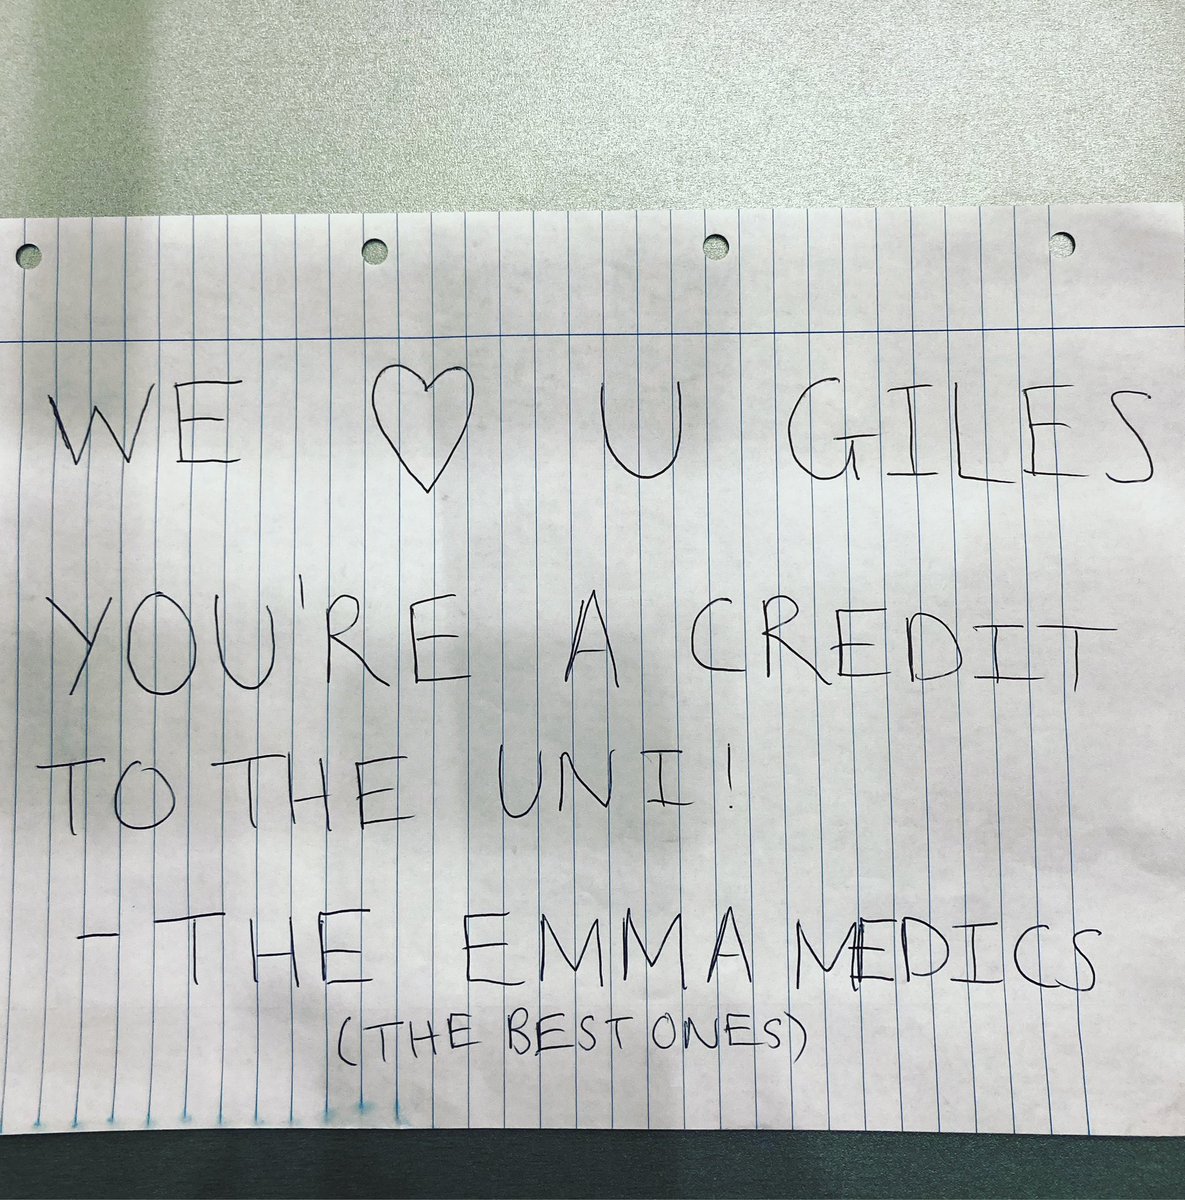 WE ♡ U GILES
YOU'RE A CREDIT
TO THE UNI!
- THE EMMA MEDICS
(THE BEST ONES)